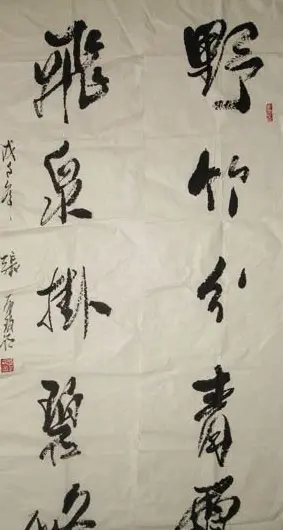 野竹分青
飛泉掛碧
戊子年
張